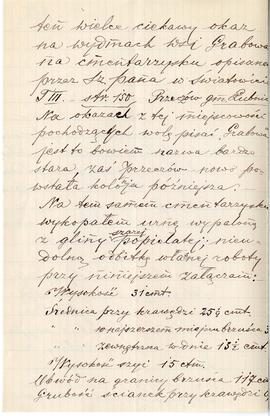 teń wielce ciekawy okaz
na wydmach koj Grabowa
na cmentarzysku opisane
przez Sz pana w Światowici
T III. str. 150 Brzezów gm. Lutni
Na okazach z tej miejscowości
pochodzących wolę pisać Grabowa
jest to bowiem nazwa bardzo
stara, zaś Brzezów nowo po-
wstała kolonja późniejsza.
Na tem samem cmentarzysku
wykopałem urnę wypaloną
z gliny szarej popielatej; nieu-
dolną odbitkę własnej roboty
przy niniejszem załączam:
Wysokość 31 cmt.
Średnica przy krawędzi 25½ cmt.
" w najszerszem miejscu brzuśca 3
" zewnętrzna w dnie 13½ cmt
" Wysokość szyi 15 ctm.
Obwód na granicy brzuśca 117 cm
Grubość ścianek przy krawędzi